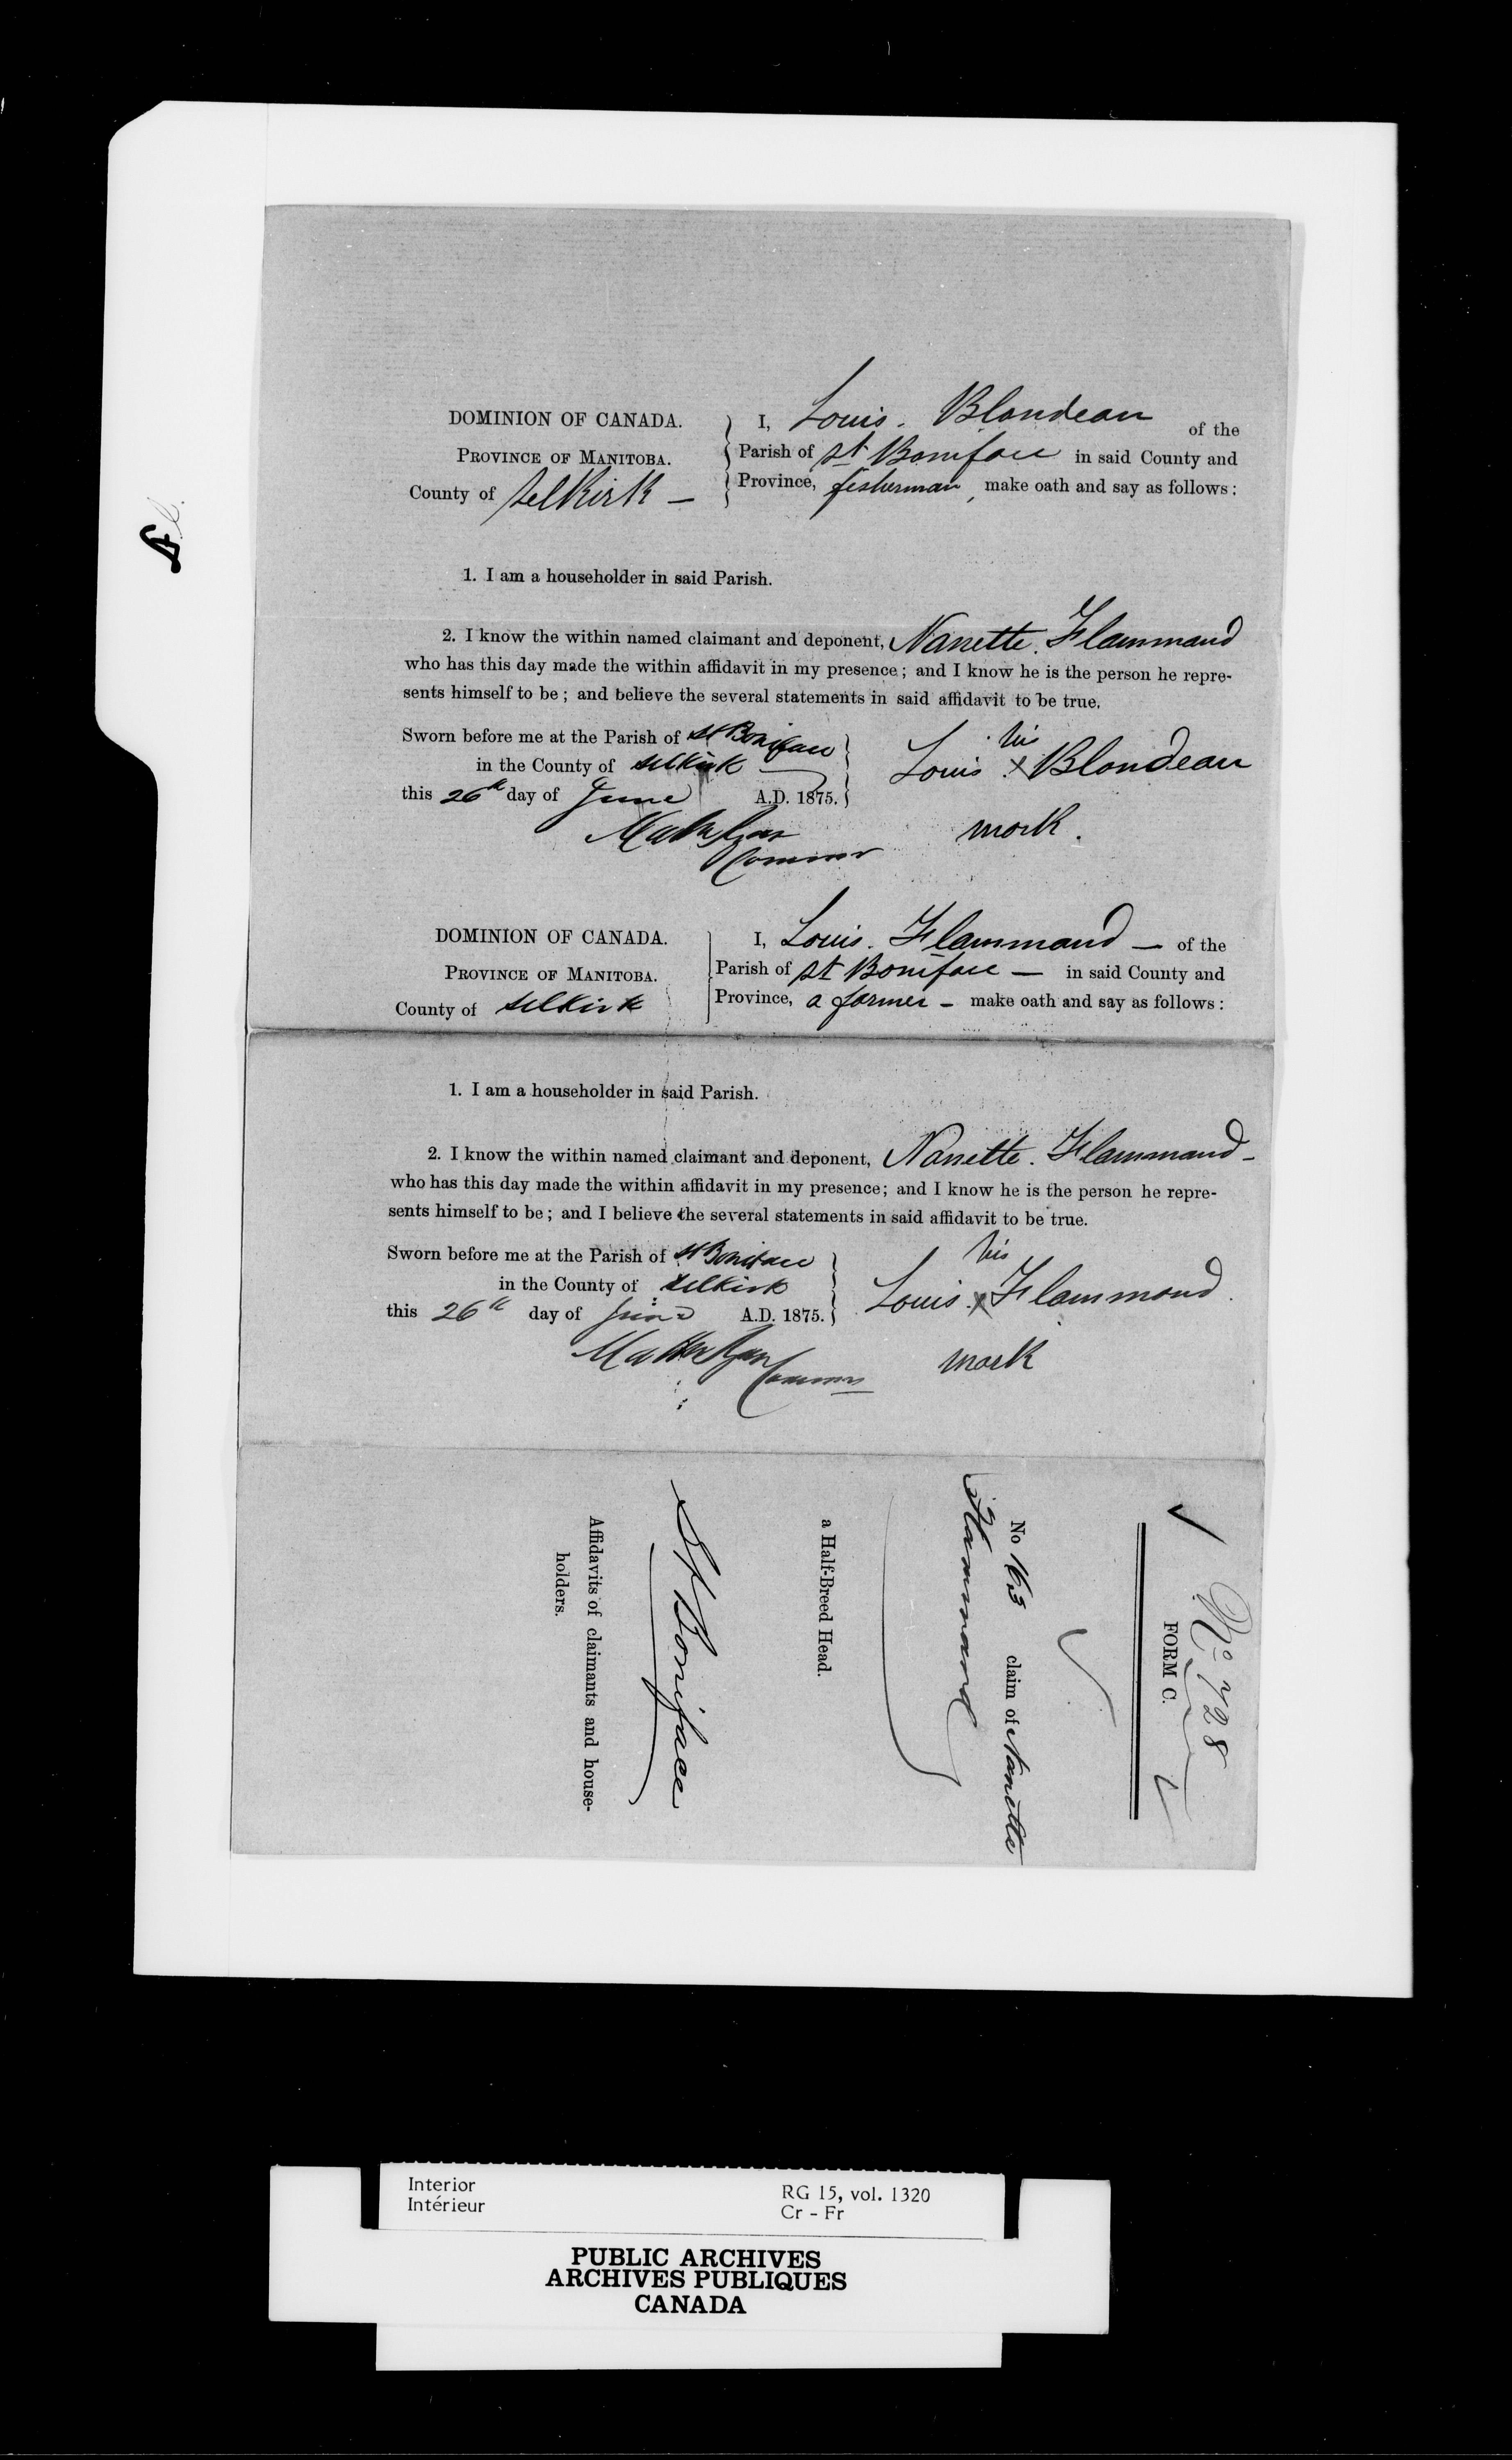 DOMINION OF CANADA.
PROVINCE OF MANITOBA.
County of Selkirk —
I, Louis. Blondeau of the
Parish of St Boniface in said County and
Province, fisherman, make oath and say as follows:
1. I am a householder in said Parish.
2. I know the within named claimant and deponent, Nanette. Flammand
who has this day made the within affidavit in my presence; and I know he is the person he repre-
sents himself to be; and believe the several statements in said affidavit to be true.
Sworn before me at the Parish of St Boniface
in the County of Selkirk
this 26th day of June A.D. 1875.
his
Louis X Blondeau
mark.
Matt Ryan
DOMINION OF CANADA.
PROVINCE OF MANITOBA.
County of Selkirk
I, Louis. Flammand — of the
Parish of St Boniface — in said County and
Province, a farmer — make oath and say as follows:
1. I am a householder in said Parish.
2. I know the within named claimant and deponent, Nanette. Flammand —
who has this day made the within affidavit in my presence; and I know he is the person he repre-
sents himself to be; and I believe the several statements in said affidavit to be true.
Sworn before me at the Parish of St Boniface
in the County of Selkirk
this 26th day of June A.D. 1875.
his
Louis. X Flammond.
mark
Matthew Ryan
No 728
FORM C.
No 163 claim of Nanette
Flammand
a Half-Breed Head.
St Boniface
Affidavits of claimants and house-
holders.
Interior
Intérieur
RG 15, vol. 1320
Cr - Fr
PUBLIC ARCHIVES
ARCHIVES PUBLIQUES
CANADA